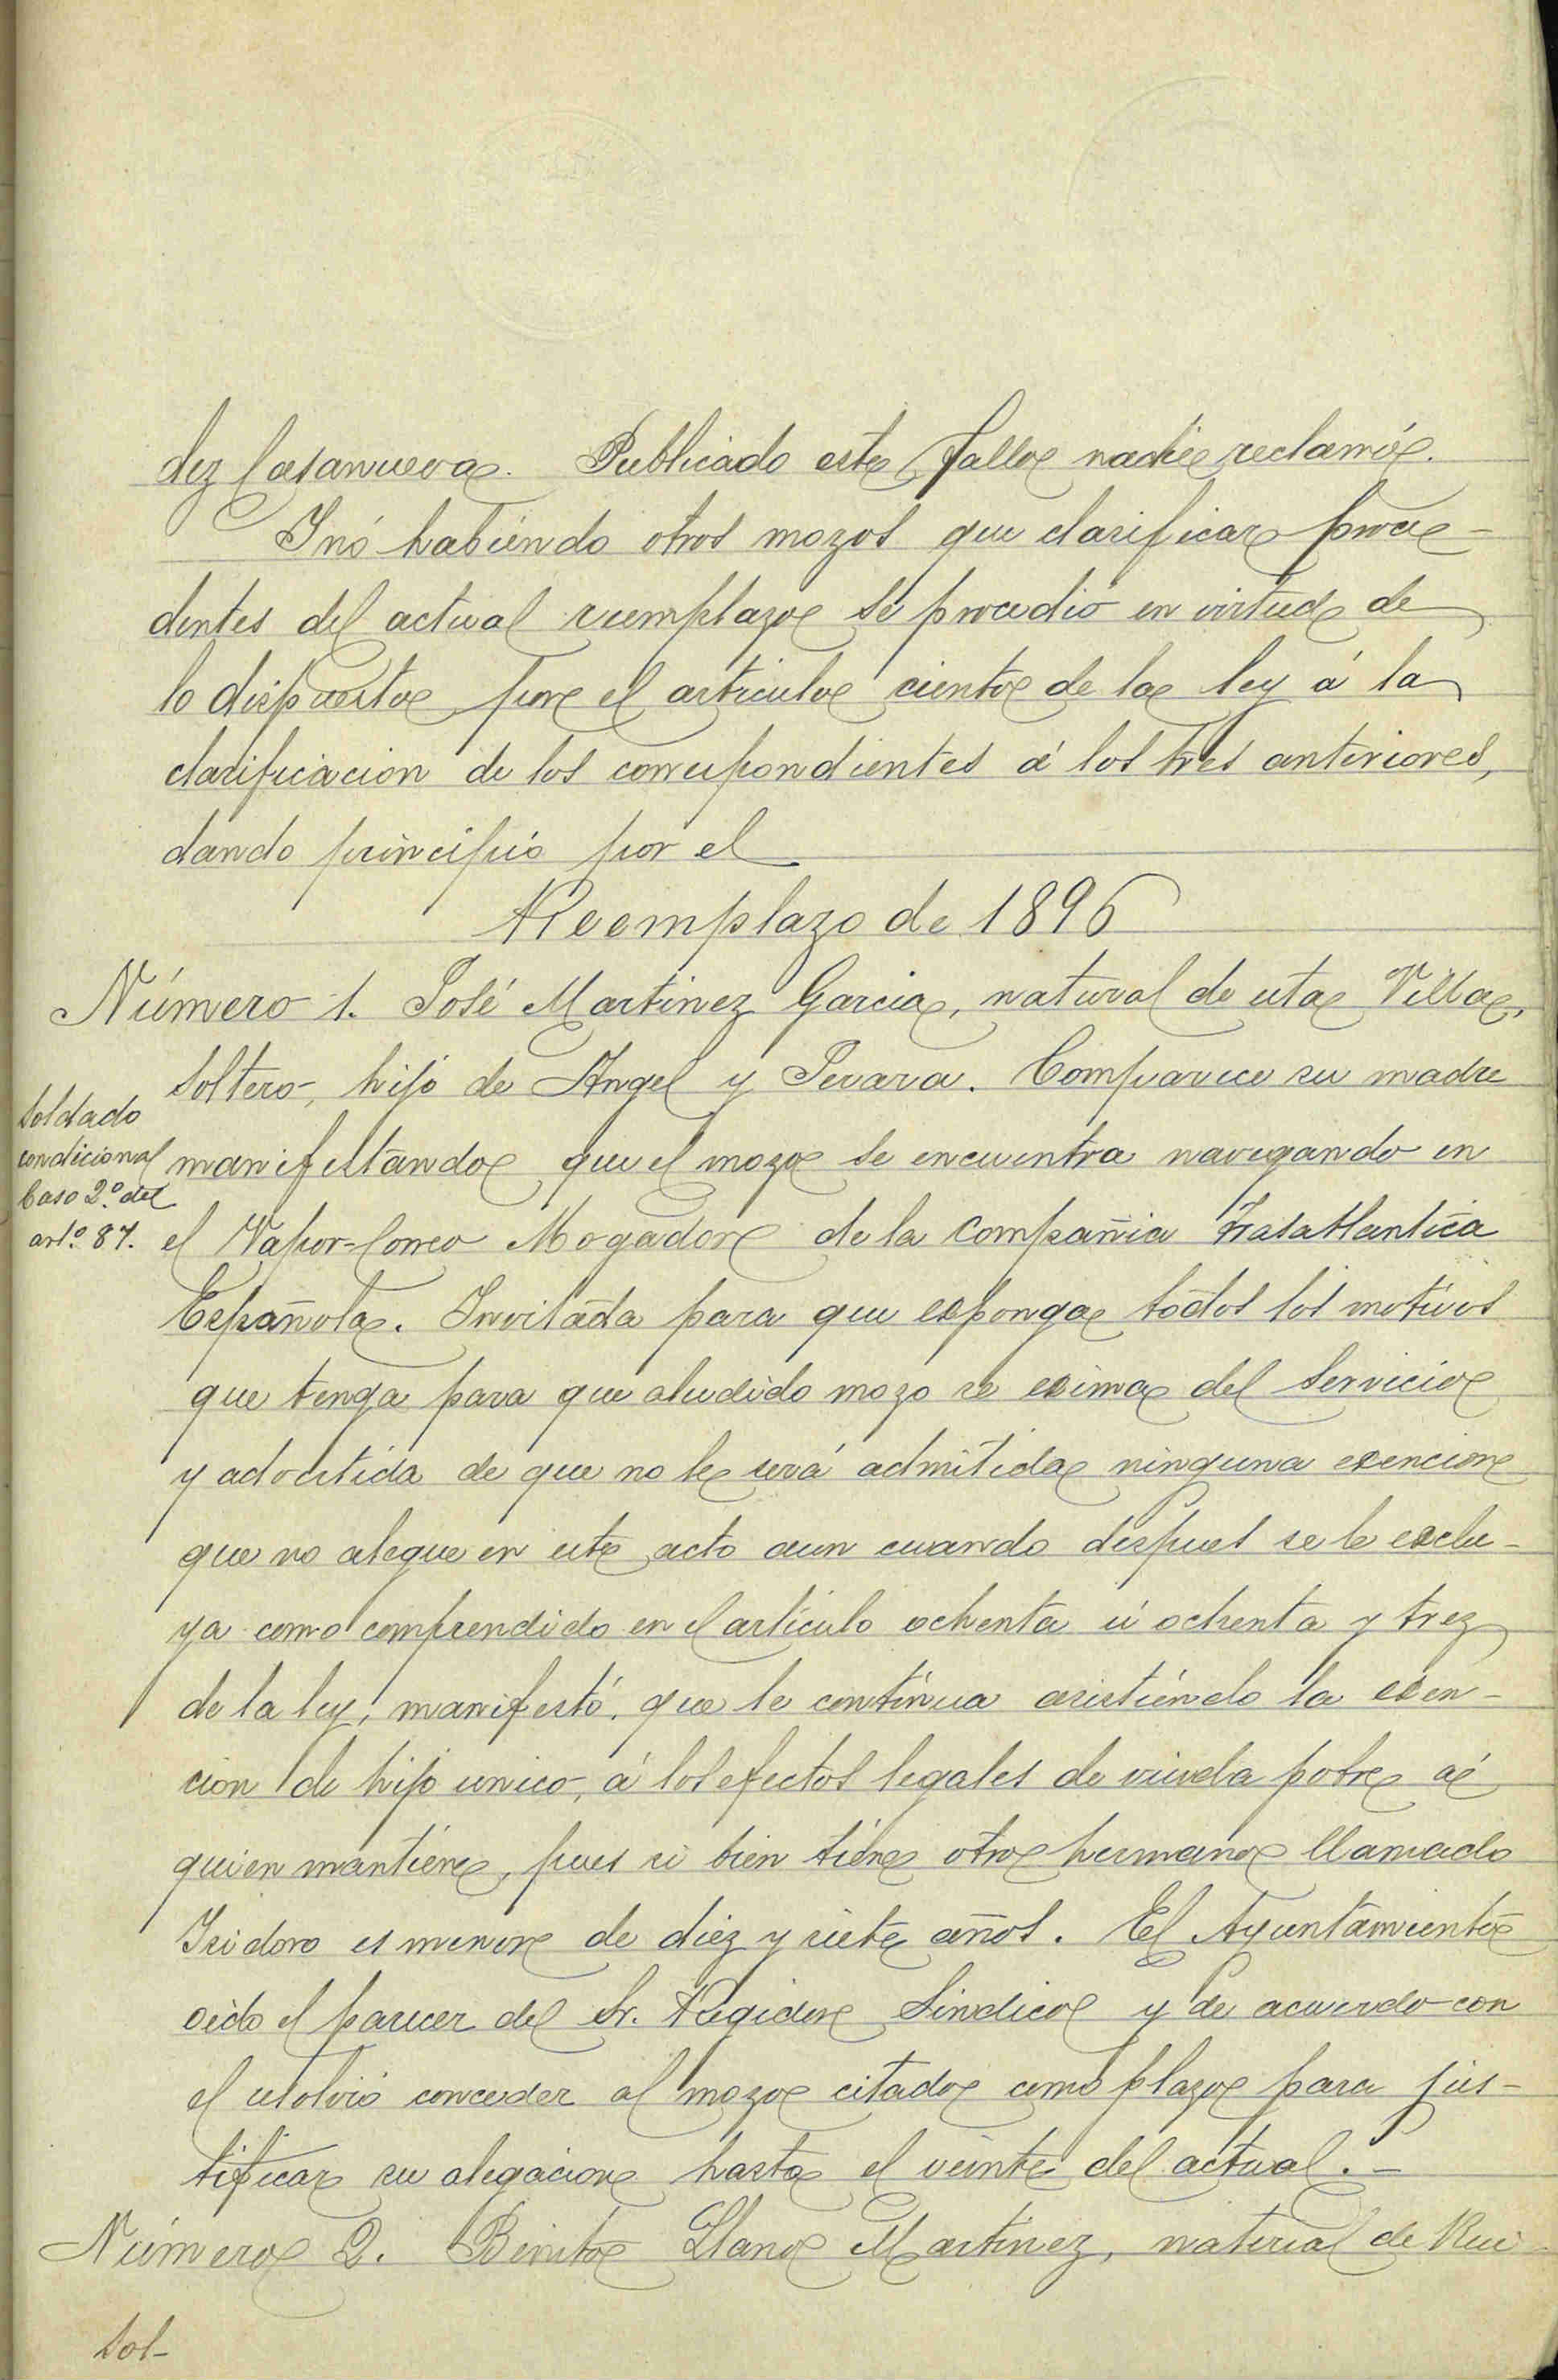 dez Casanueva. Publicado este fallo nadie reclamó.
Y nó habiendo otros mozos que clasificar proce-
dentes del actual reemplazo se procedió en virtud de
lo dispuesto por el articulo ciento de la ley á la
clasificacion de los correspondientes á los tres anteriores,
dando principio por el
Reemplazo de 1896
Número 1. José Martinez Garcia, natural de esta Villa,
soltero, hijo de Angel y Genara. Comparece su madre
Soldado
condicional
Caso 2.º del
artº. 87.
manifestando que el mozo se encuentra navegando en
el Vapor-Correo Mogador de la Compañia Trasatlantica
Española. Invitada para que esponga todos los motivos
que tenga para que aludido mozo se exima del servicio
y advertida de que no le será admitida ninguna exencion
que no alegue en este acto aun cuando despues se le exclu-
ya como comprendido en el artículo ochenta ú ochenta y trez
de la ley, manifestó, que le continua asistiendo la exen-
cion de hijo unico, á los efectos legales de viuda pobre á
quien mantiene, pues si bien tiene otro hermano llamado
Isidoro es menor de diez y siete años. El Ayuntamiento
oido el parecer del Sr. Regidor Sindico y de acuerdo con
el resolvió conceder al mozo citado como plazo para jus-
tificar su alegacion hasta el veinte del actual.-
Número 2. Benito Llano Martinez, natural de
Sol-